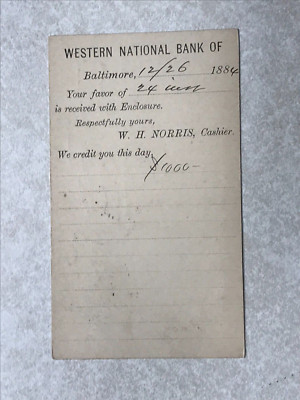 WESTERN NATIONAL BANK OF
Baltimore, 12/26 1884
Your favor of 24 inst
is received with Enclosure.
Respectfully yours,
W. H. NORRIS, Cashier.
We credit you this day,
$1000-